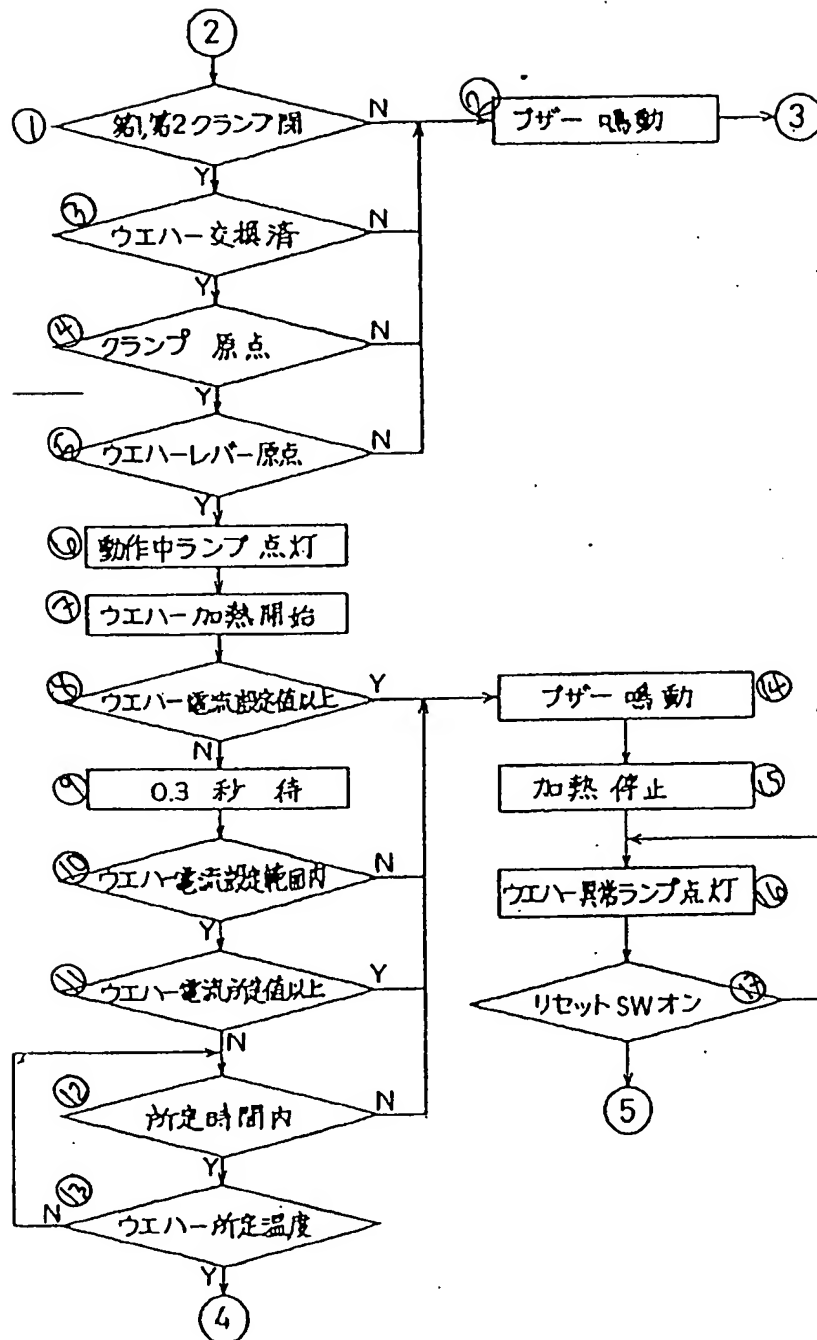 ②
① 第1,第2クランプ閉
N
② ブザー 鳴動
③
Y
③ ウエハー交換済
N
Y
④ クランプ 原点
N
Y
⑤ ウエハーレバー原点
N
Y
⑥ 動作中ランプ点灯
⑦ ウエハー加熱開始
⑧ ウエハー電流設定値以上
Y
⑭ ブザー 鳴動
N
⑨ 0.3 秒 待
⑮ 加熱停止
⑩ ウエハー電流設定範囲内
N
⑯ ウエハー異常ランプ点灯
Y
⑪ ウエハー電流所定値以上
Y
⑰ リセットSWオン
N
⑫ 所定時間内
N
⑤
Y
⑬ ウエハー所定温度
N
Y
④